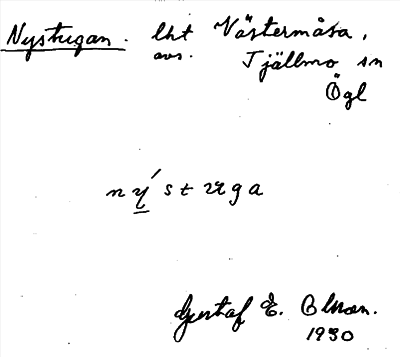 Nystugan. lht Västermåsa,
avs. Tjällmo sn
Ögl
nýstuga
Gustaf E. Olsson.
1930